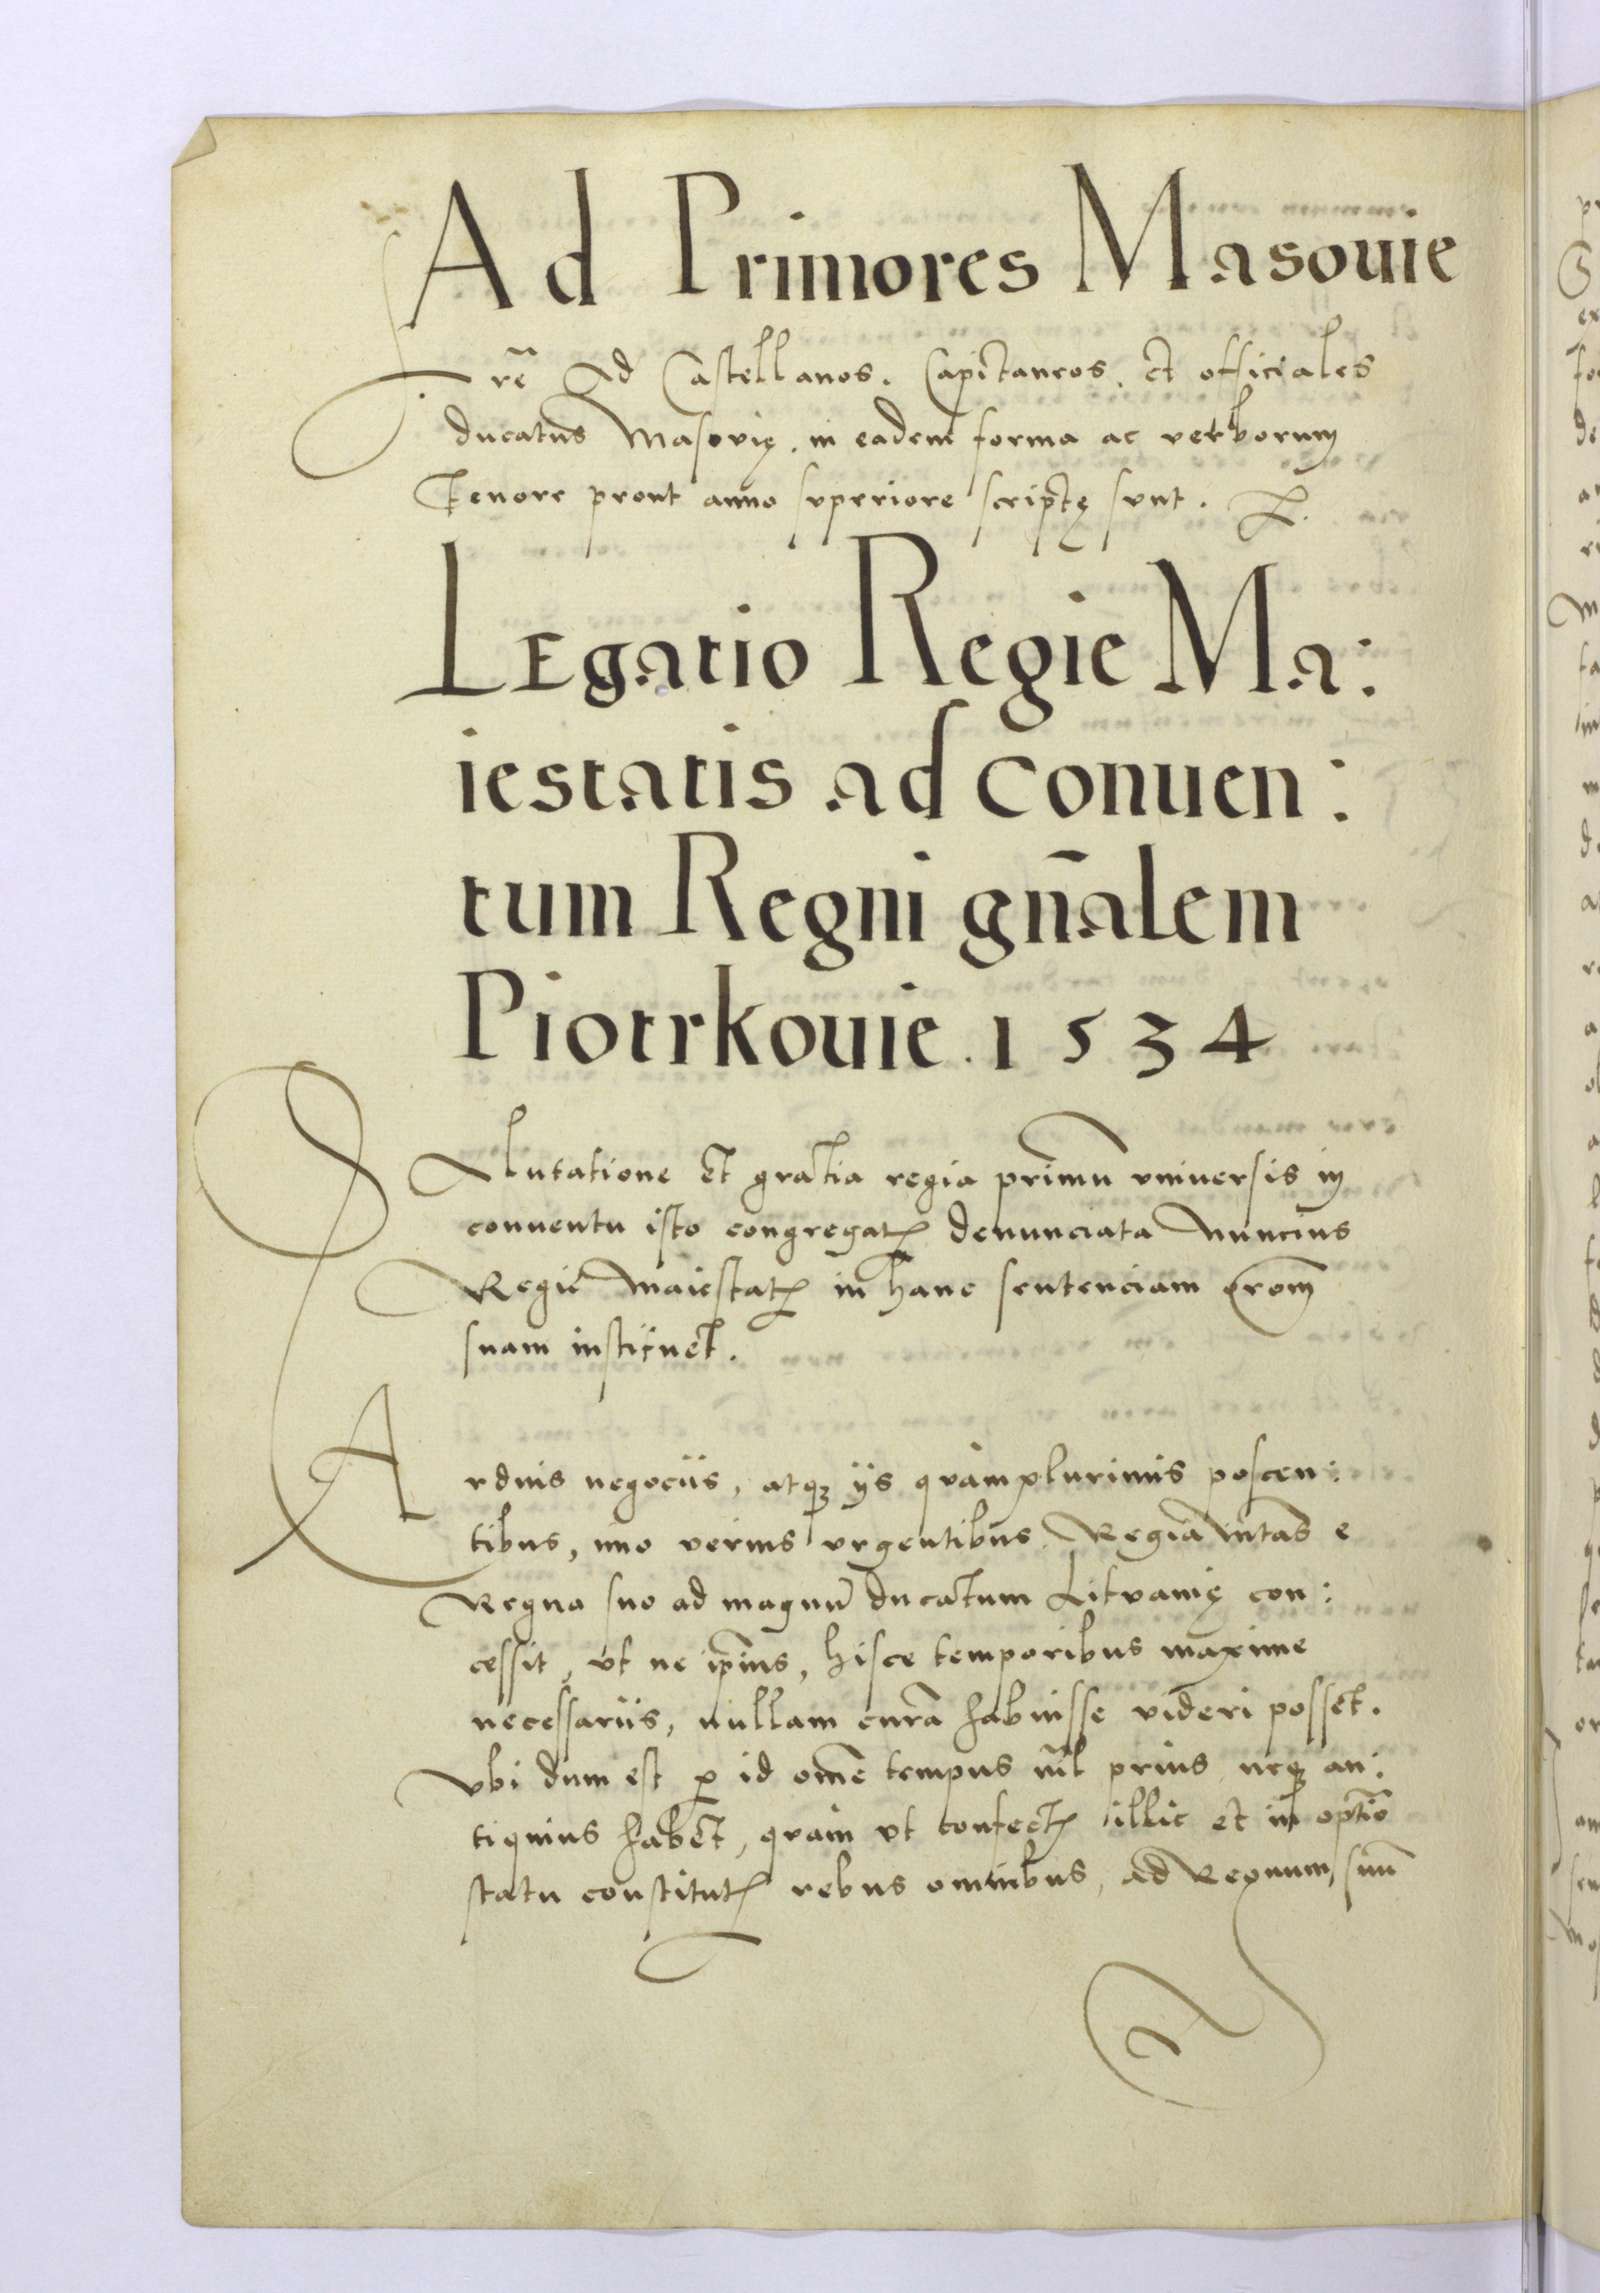 Ad Primores Masouie
Lrẽ Ad Castellanos. Capitaneos. et officiales
ducatus Masovię. in eadem forma ac verborum
Tenore prout anno svperiore scriptę svnt.
Legatio Regie Ma:
iestatis ad conuen:
tum Regni gñalem
Piotrkouie. 1534
SAlutatione et gratia regia primũ vniuersis in
conuentu isto congregatꝭ denunciata Nuncius
Regie Maiestatꝭ in hanc sentenciam orõm
suam instituet.
Arduis negociis, atqꝫ ijs qvam plurimis poscen:
tibus, imo verius vrgentibus Regia Mtas e
Regno suo ad magnũ ducatum Litvanię con:
cessit, vt ne ipius, hisce temporibus maxime
necessariis, nullam curã habuisse videri posset.
Vbi dum est ꝑ id omẽ tempus nĩl prius neqꝫ an:
tiquius habet, qvam vt confectꝭ illic et in optĩo
statu constitutꝭ rebus omnibus, ad Regnum suũ